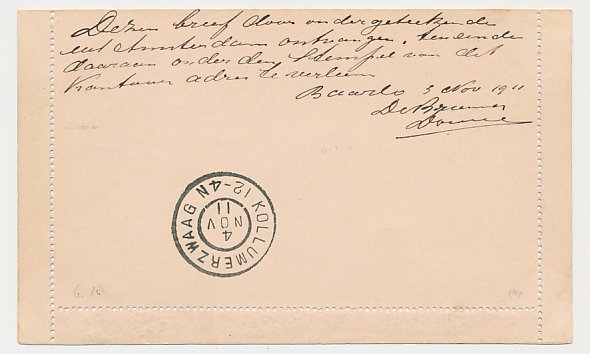 Dezen brief door ondergeteekende
uit Amsterdam ontvangen, teneinde
daaraan onder den Stempel van dit
Kantoor adres te verleen
Baarlo 3 Nov 1911
De Brummer
KOLLUMERZWAAG
N 12-4
4
NOV
11